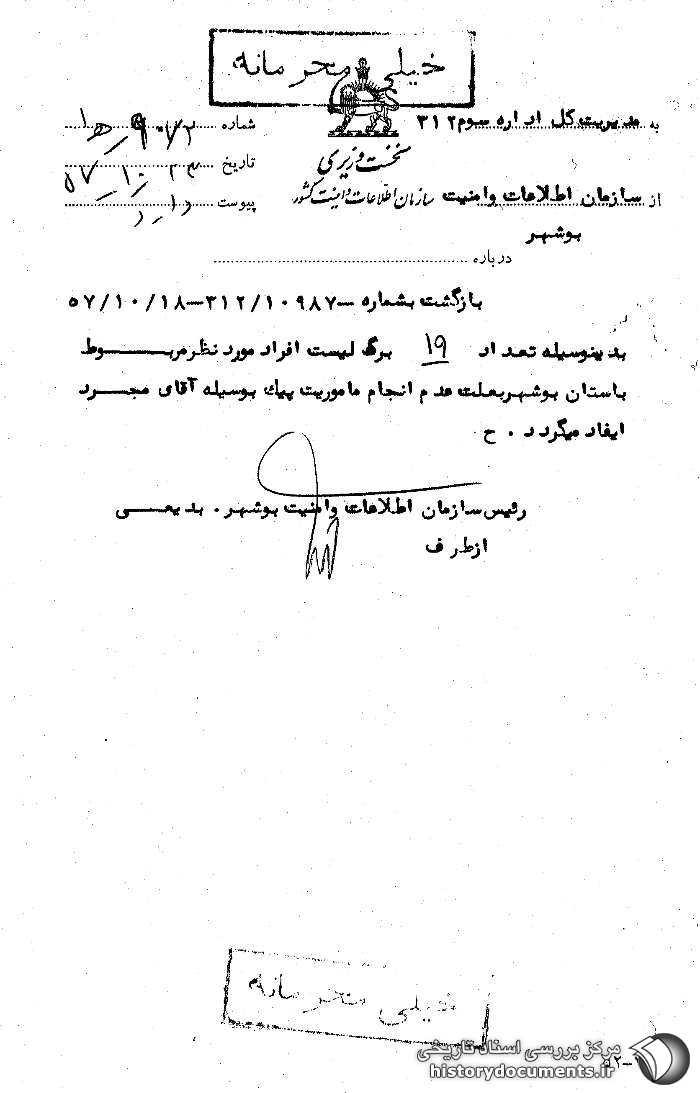 خیلی محرمانه
به مدیریت کل اداره سوم ۳۱۲
شماره
نخست وزیری
تاریخ ۵۷/۱۰/۲۳
از سازمان اطلاعات وامنیت
سازمان اطلاعات و امنیت کشور
پیوست دارد
بوشهر
درباره
بازگشت بشماره –۳۱۲/۱۰۹۸۷–۵۷/۱۰/۱۸
بدینوسیله تعداد ۱۹ برگ لیست افراد مورد نظر مربوط
باستان بوشهر بعلت عدم انجام ماموریت پیك بوسیله آقای مجرد
ایفاد میگردد . ح
رئیس سازمان اطلاعات وامنیت بوشهر . بدیعی
از طرف
خیلی محرمانه
مرکز بررسی اسناد تاریخی
historydocuments.ir